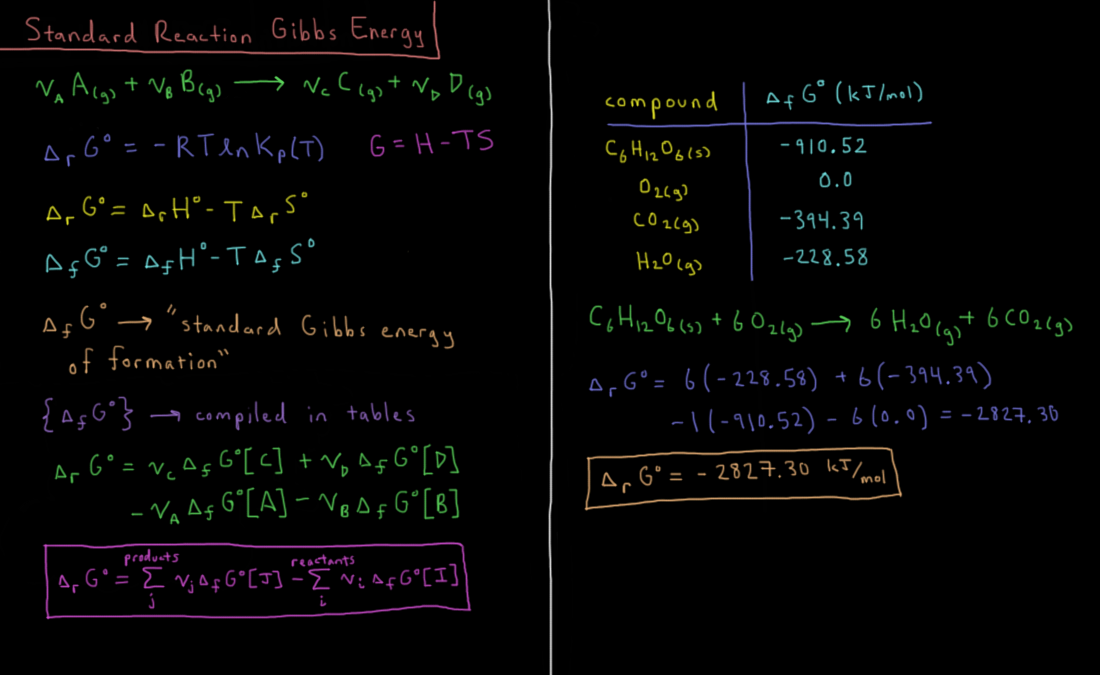 Standard Reaction Gibbs Energy
ν_A A(g) + ν_B B(g) → ν_C C(g) + ν_D D(g)
Δ_r G° = -RT ln K_p(T)    G = H - TS
Δ_r G° = Δ_r H° - T Δ_r S°
Δ_f G° = Δ_f H° - T Δ_f S°
Δ_f G° → "standard Gibbs energy
of formation"
{Δ_f G°} → compiled in tables
Δ_r G° = ν_C Δ_f G°[C] + ν_D Δ_f G°[D]
- ν_A Δ_f G°[A] - ν_B Δ_f G°[B]
products    reactants
Δ_r G° = Σ_j ν_j Δ_f G°[J] - Σ_i ν_i Δ_f G°[I]
compound    Δ_f G° (kJ/mol)
C₆H₁₂O₆(s)    -910.52
O₂(g)    0.0
CO₂(g)    -394.39
H₂O(g)    -228.58
C₆H₁₂O₆(s) + 6 O₂(g) → 6 H₂O(g) + 6 CO₂(g)
Δ_r G° = 6(-228.58) + 6(-394.39)
-1(-910.52) - 6(0.0) = -2827.30
Δ_r G° = -2827.30 kJ/mol